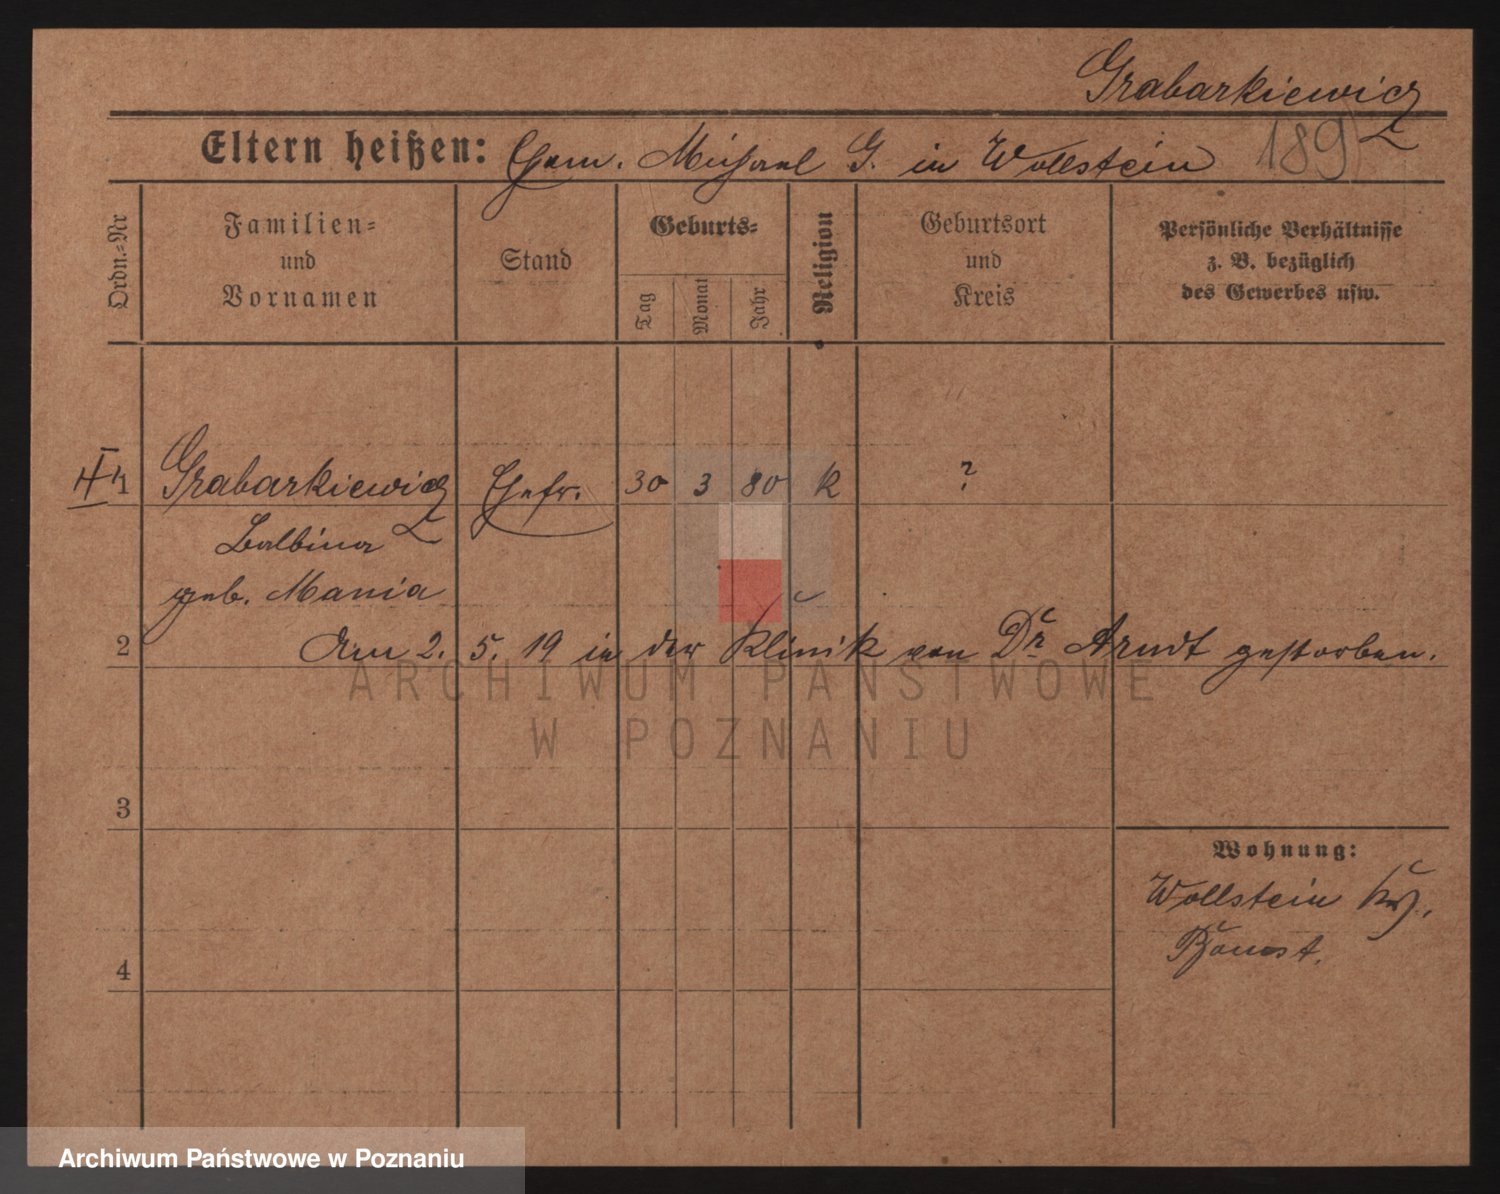 Grabarkiewicz
189
Eltern heißen: Gem. Michael G. in Wollstein
Ordn.=Nr
Familien=
und
Vornamen
Stand
Geburts=
Tag
Monat
Jahr
Religion
Geburtsort
und
Kreis
Persönliche Verhältnisse
z. B. bezüglich
des Gewerbes usw.
1 Grabarkiewicz Ehefr. 30 3 80 k ?
Balbina
geb. Mania
2 Am 2. 5. 19 in der Klinik von Dr Arndt gestorben.
3
Wohnung:
Wollstein Krs.
Bomst.
4
ARCHIWUM PAŃSTWOWE
W POZNANIU
Archiwum Państwowe w Poznaniu